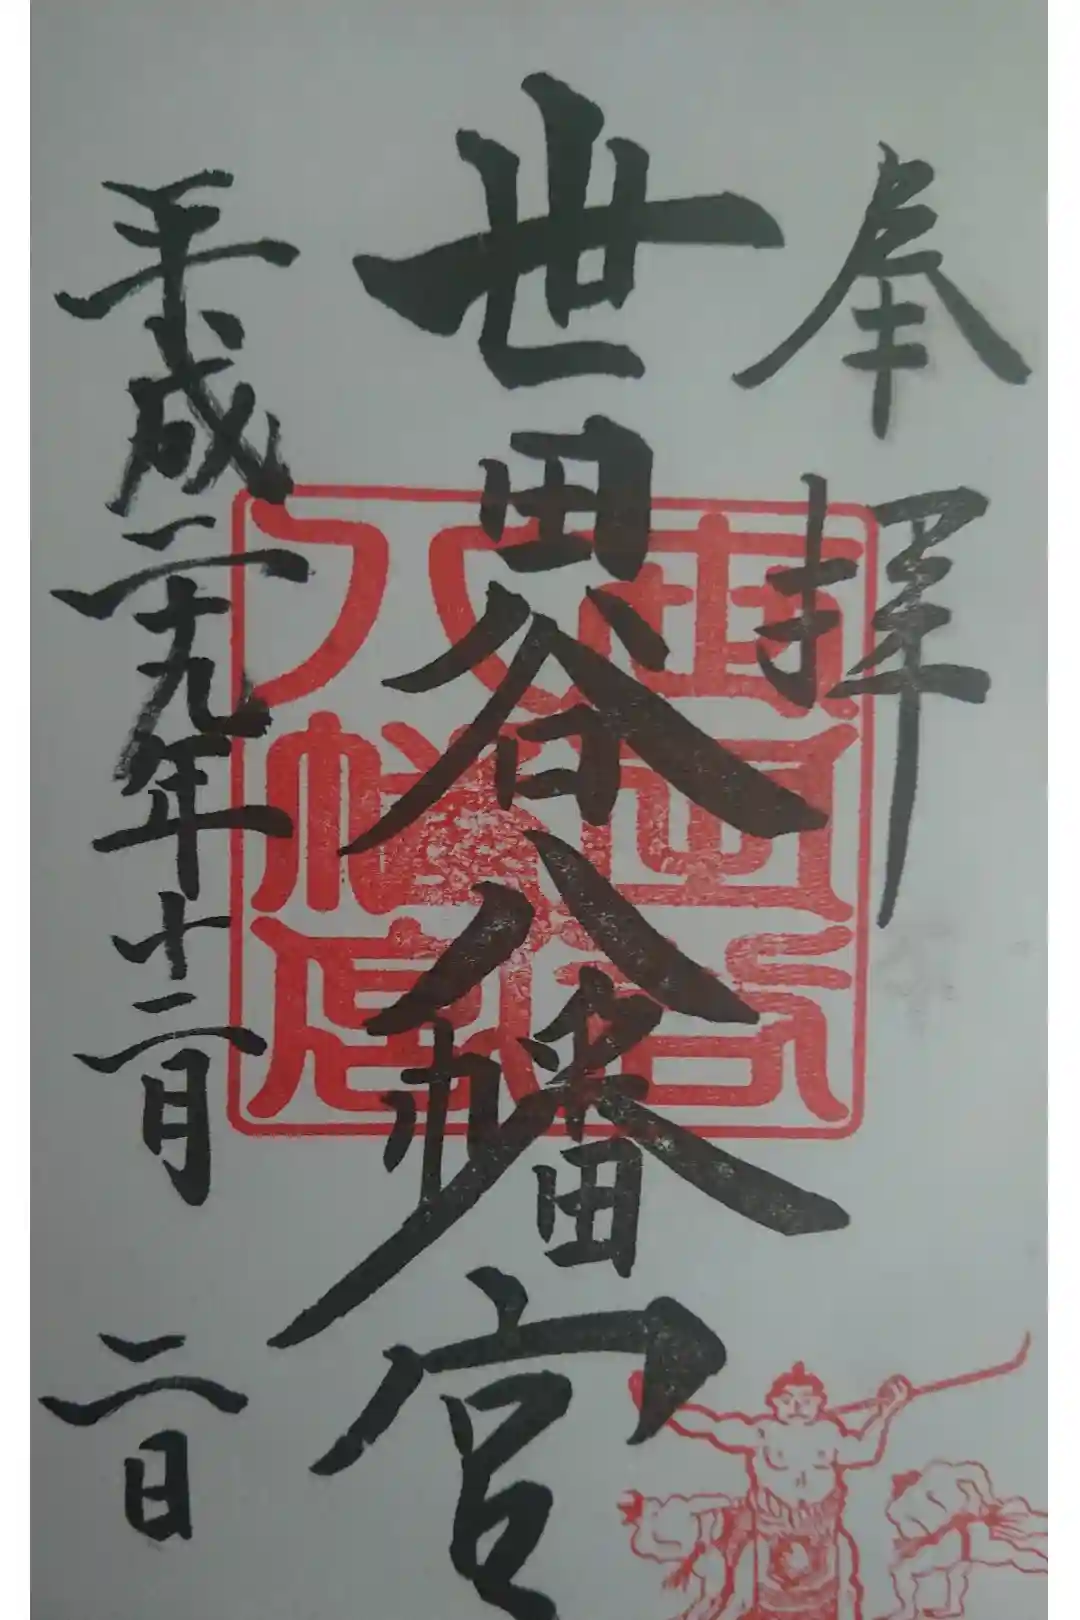 奉拝
世田谷八幡宮
平成二十九年十二月二日
世田谷
八幡宮